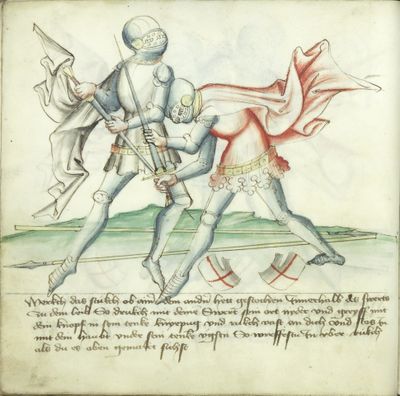 Merckh das stuckh ob ain dem andn hett gestochen Innerhalb des swertz
zu dem leib So druckh mit deme Swert sein ort nider und greyff mit
dem knopf in sein tenke knyepug und ruckh vast an dich und stos In
mit dem haubt under sein tenke uchsen So wirffestu In uber ruckh
als du es oben gemalet sichst